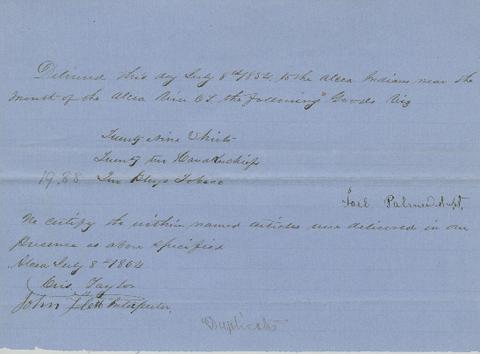 Delivered this day July 8th 1854 to the Alcea Indians near the
mouth of the Alcea River O.T. the following Goods Viz
Twenty Nine Shirts
Twenty ten Handkerchiefs
19.88 Ten Plugs Tobaco
Joel Palmer Supt.
We certify the within named articles were delivered in our
presence as above specified
Alcea July 8th 1854
Cris. Taylor
John Flett Interpreter.
Duplicate